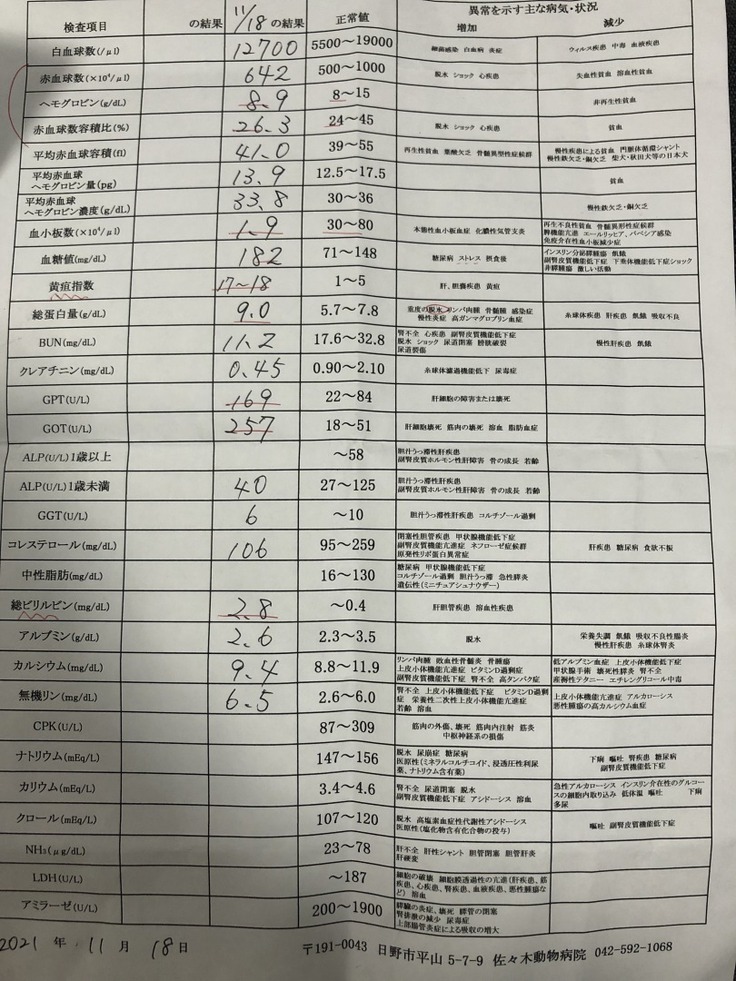 検査項目 の結果 11/18 の結果 正常値 異常を示す主な病気・状況
増加 減少
白血球数(/μl) 12700 5500〜19000 細菌感染 白血病 炎症 ウィルス疾患 中毒 血液疾患
赤血球数(×10⁴/μl) 642 500〜1000 脱水 ショック 心疾患 失血性貧血 溶血性貧血
ヘモグロビン(g/dL) 8.9 8〜15 非再生性貧血
赤血球数容積比(%) 26.3 24〜45 脱水 ショック 心疾患 貧血
平均赤血球容積(fl) 41.0 39〜55 再生性貧血 葉酸欠乏 骨髄異型性症候群 慢性疾患による貧血 門脈体循環シャント
慢性鉄欠乏・銅欠乏 柴犬・秋田犬等の日本犬
平均赤血球
ヘモグロビン量(pg) 13.9 12.5〜17.5 貧血
平均赤血球
ヘモグロビン濃度(g/dL) 33.8 30〜36 慢性鉄欠乏・銅欠乏
血小板数(×10⁴/μl) 1.9 30〜80 本態性血小板血症 化膿性気管支炎 再生不良性貧血 骨髄異形性症候群
脾機能亢進 エールリッヒア、バベシア感染
免疫介在性血小板減少症
血糖値(mg/dL) 182 71〜148 糖尿病 ストレス 摂食後 インスリン分泌膵腫瘍 飢餓
副腎皮質機能低下症 下垂体機能低下症ショック
非膵腫瘍 激しい活動
黄疸指数 17〜18 1〜5 肝、胆嚢疾患 黄疸
総蛋白量(g/dL) 9.0 5.7〜7.8 重度の脱水 リンパ肉腫 骨髄腫 感染症
慢性炎症 高ガンマグロブリン血症 糸球体疾患 肝疾患 飢餓 吸収不良
BUN(mg/dL) 11.2 17.6〜32.8 腎不全 心疾患 副腎皮質機能低下症
脱水 ショック 尿道閉塞 膀胱破裂
尿道裂傷 慢性肝疾患 飢餓
クレアチニン(mg/dL) 0.45 0.90〜2.10 糸球体濾過機能低下 尿毒症
GPT(U/L) 169 22〜84 肝細胞の障害または壊死
GOT(U/L) 257 18〜51 肝細胞壊死 筋肉の壊死 溶血 脂肪血症
ALP(U/L)1歳以上 〜58 胆汁うっ滞性肝疾患
副腎皮質ホルモン性肝障害 骨の成長 若齢
ALP(U/L)1歳未満 40 27〜125 胆汁うっ滞性肝疾患
副腎皮質ホルモン性肝障害 骨の成長 若齢
GGT(U/L) 6 〜10 胆汁うっ滞性肝疾患 コルチゾール過剰
コレステロール(mg/dL) 106 95〜259 閉塞性胆管疾患 甲状腺機能低下症
副腎皮質機能亢進症 ネフローゼ症候群
原発性リポ蛋白異常症 肝疾患 糖尿病 食欲不振
中性脂肪(mg/dL) 16〜130 糖尿病 甲状腺機能低下症
コルチゾール過剰 胆汁うっ滞 急性膵炎
遺伝性(ミニチュアシュナウザー)
総ビリルビン(mg/dL) 2.8 〜0.4 肝胆管疾患 溶血性疾患
アルブミン(g/dL) 2.6 2.3〜3.5 脱水 栄養失調 飢餓 吸収不良性腸炎
慢性肝疾患 糸球体腎炎
カルシウム(mg/dL) 9.4 8.8〜11.9 リンパ肉腫 敗血性骨髄炎 骨腫瘍
上皮小体機能亢進症 ビタミンD過剰症
副腎皮質機能低下症 腎不全 高タンパク症 低アルブミン血症 上皮小体機能低下症
甲状腺手術 壊死性膵炎 腎不全
産褥性テタニー エチレングリコール中毒
無機リン(mg/dL) 6.5 2.6〜6.0 腎不全 上皮小体機能低下症 ビタミンD過剰
症 栄養性二次性上皮小体機能亢進症
若齢 溶血 上皮小体機能亢進症 アルカローシス
悪性腫瘍の高カルシウム血症
CPK(U/L) 87〜309 筋肉の外傷、壊死 筋肉内注射 筋炎
中枢神経系の損傷
ナトリウム(mEq/L) 147〜156 脱水 尿崩症 糖尿病
医原性(ミネラルコルチコイド、浸透圧性利尿
薬、ナトリウム含有薬) 下痢 嘔吐 腎疾患 糖尿病
副腎皮質機能低下症
カリウム(mEq/L) 3.4〜4.6 腎不全 尿道閉塞 脱水
副腎皮質機能低下症 アシドーシス 溶血 急性アルカローシス インスリン介在性のグルコー
スの細胞内取り込み 低体温 嘔吐 下痢
多尿
クロール(mEq/L) 107〜120 脱水 高塩素血症性代謝性アシドーシス
医原性(塩化物含有化合物の投与) 嘔吐 副腎皮質機能低下症
NH₃(μg/dL) 23〜78 肝不全 肝性シャント 胆管閉塞 胆管肝炎
肝硬変
LDH(U/L) 〜187 細胞の破壊 細胞膜透過性の亢進(肝疾患、筋
疾患、心疾患、腎疾患、血液疾患、悪性腫瘍な
ど) 溶血
アミラーゼ(U/L) 200〜1900 膵臓の炎症、壊死 膵管の閉塞
腎排泄の減少 尿毒症
上部腸管炎症による吸収の増大
2021 年 11 月 18 日 〒191-0043 日野市平山 5-7-9 佐々木動物病院 042-592-1068